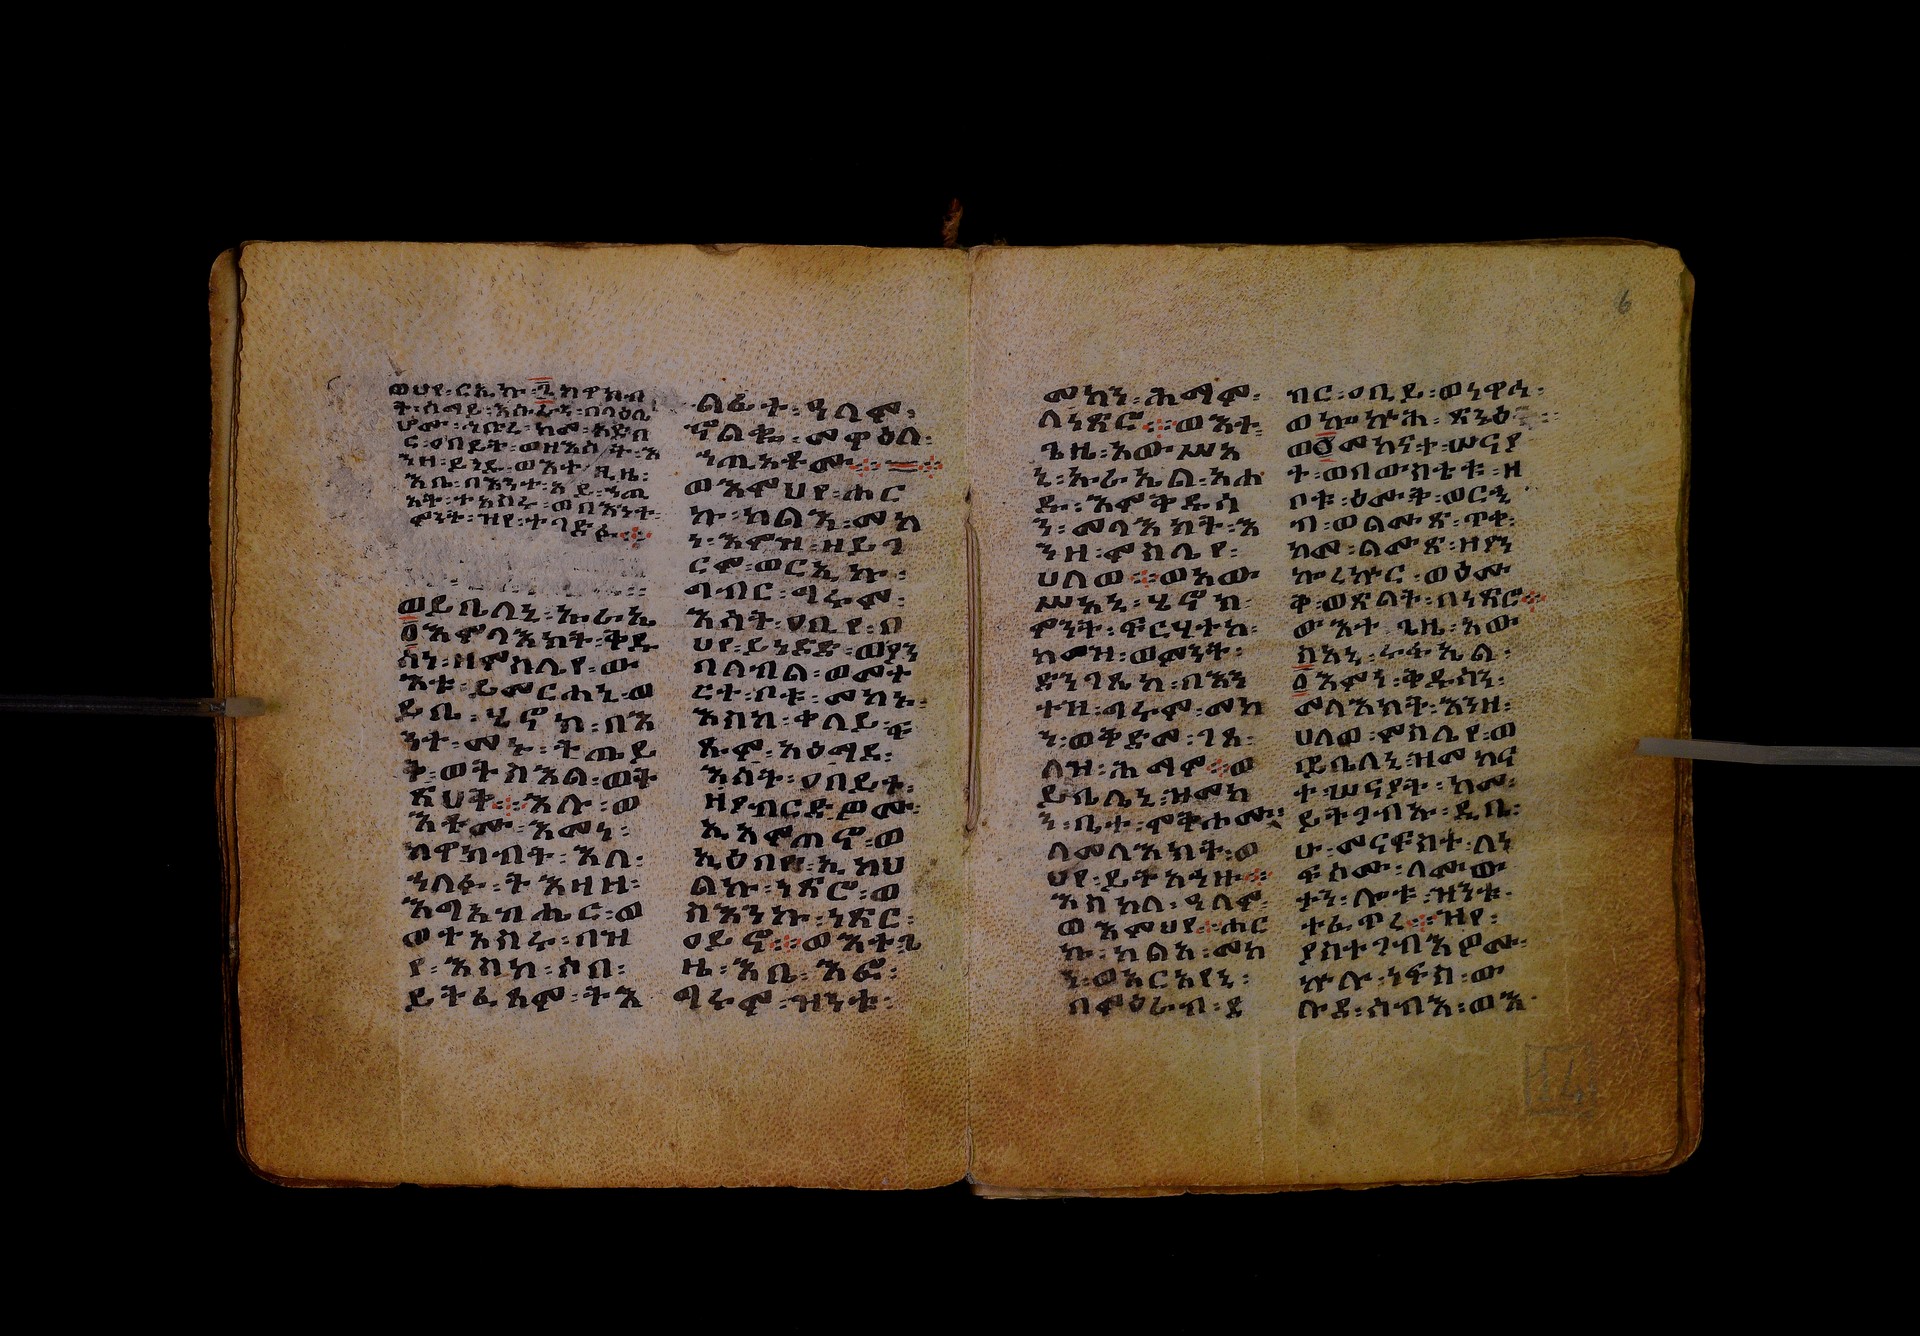 ወህየ፡ርኢኩ፡፯ከዋክብ
ተ፡ሰማይ፡እሱራን፡በላዕሌ
ሁ፡ኅቡረ፡ከመ፡አድባ
ር፡ዐበይት፡ወዘእሳት፡እ
ንዘ፡ይነድ፡ወእተ፡ጊዜ፡
እቤ፡በእንተ፡አይ፡ኀጢ
አት፡ተአስሩ፡ወበእንተ፡
ምንት፡ዝየ፡ተገድፉ።
ወይቤለኒ፡ኡራኤ
፩እምላእክት፡ቅዱ
ሳን፡ዘምስሌየ፡ው
እቱ፡ይመርሐኒ፡ወ
ይቤ፡ሄኖክ፡በእ
ንተ፡መኑ፡ትጤይ
ቅ፡ወትስእል፡ወት
ጽህቅ።እሉ፡ወ
እቶሙ፡እመነ፡
ከዋክብት፡እለ፡
ኀለፉ፡ትእዛዘ፡
እግአብሔር፡ወ
ወተአስሩ፡በዝ
የ፡እስከ፡ሶበ፡
ይትፌጸም፡ትእ
ልፊት፡ዓለም፡
ኆልቈ፡መዋዕለ፡
ኀጢአቶሙ።
ወእምህየ፡ሐር
ኩ፡ካልእ፡መካ
ነ፡እምዝ፡ዘይገ
ርም፡ወርኢኩ፡
ግብር፡ግሩም፡
እሳት፡ዐቢየ፡በ
ህየ፡ይነድድ፡ወያን
በለብል፡ወመተ
ርተ፡ቦቱ፡መካኑ፡
እስከ፡ቀላይ፡ፍ
ጹም፡አዕማደ፡
እሳት፡ዐበይት፡
ዘያብርድዎሙ፡
ኢአምጠኖ፡ወ
ኢዕበዩ፡ኢክህ
ልኩ፡ነጽሮ፡ወ
ስእንኩ፡ነጽር፡
ዐይኖ።ወእተጊ
ዜ፡እቤ፡እፎ፡
ግሩም፡ዝንቱ፡
መካን፡ሕማም፡
ለነጽሮ።ወእተ፡
ጊዜ፡አውሥአ
ኒ፡ኡራኤል፡አሐ
ዱ፡እምቅዱሳ
ን፡መላእክት፡እ
ንዘ፡ምስሌየ፡
ሀለወ።ወአው
ሥአኒ፡ሄኖክ፡
ምንት፡ፍርሃተከ፡
ከመዝ፡ወመንት፡
ድንጋጼከ፡በእን
ተዝ፡ግሩም፡መካ
ን፡ወቅድመ፡ገጸ፡
ለዝ፡ሕማም።ወ
ይቤለኒ፡ዝመካ
ን፡ቤተ፡ምቅሐሙ፡
ለመላእክት፡ወ
ህየ፡ይትአኀዙ።
እስከለ፡ዓለም፡
ወእምህየ።ሐር
ኩ፡ካልእ፡መካ
ነ፡ወአርአየኒ፡
በምዕራብ፡ደ
ብር፡ዐቢይ፡ወነዋኅ፡
ወኰኵሕ፡ጽንዕ፡
ወ፬መካናት፡ሠናያ
ት፡ወበውስቴቱ፡ዘ
ቦቱ፡ዕሙቅ፡ወርኂ
ብ፡ወልሙጽ፡ጥቀ፡
ከመ፡ልሙጽ፡ዘያን
ኰረኵር፡ወዕሙ
ቅ፡ወጽልት፡በነጽሮ።
ውእተ፡ጊዜ፡አው
ስአኒ፡ሩፋኤል፡
፩እምነ፡ቅዱሳን፡
መላእክት፡እንዘ፡
ሀለወ፡ምስሌየ፡ወ
ይቤለኒ፡ዝመካና
ት፡ሠናያት፡ከመ፡
ይትጋብኡ፡ዲቤ፡
ሁ፡መናፍስት፡ለነ
ፍሶሙ፡ለሙው
ታን፡ሎቱ፡ዝንቱ፡
ተፈጥረ።ዝየ፡
ያስተጋብእዎሙ፡
ኵሉ፡ነፍስ፡ው
ሉደ፡ሰብእ፡ወእ